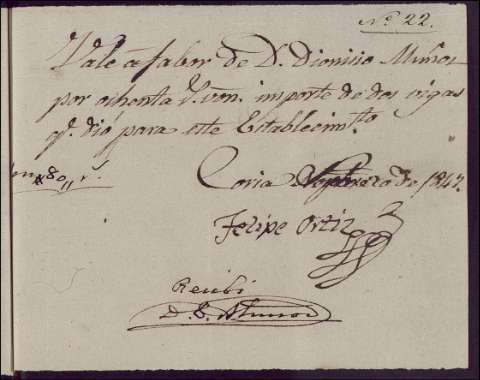 Nº 22.
Vale a fabor de D. Dionisio Muños
por ochenta r.s von. importe de dos vigas
q.e dió para este Establecim.to
80,, r.s
Coria de 1847.
Felipe Ortiz
Recibi
D. Munoz